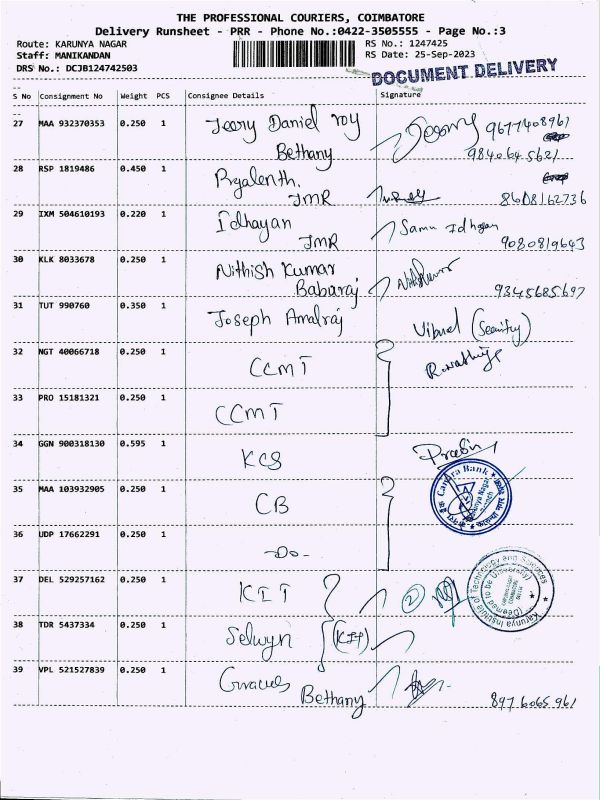 THE PROFESSIONAL COURIERS, COIMBATORE
Delivery Runsheet - PRR - Phone No.:0422-3505555 - Page No.:3
Route: KARUNYA NAGAR RS No.: 1247425
Staff: MANIKANDAN RS Date: 25-Sep-2023
DRS No.: DCJB124742503
DOCUMENT DELIVERY
S No Consignment No Weight PCS Consignee Details Signature
27 MAA 932370353 0.250 1 Jeery Daniel roy 9677408961
Bethany 9840645621
28 RSP 1819486 0.450 1
JMR 8608162736
29 IXM 504610193 0.220 1 Idhayan Samu Idhayan
JMR 9080819643
30 KLK 8033678 0.250 1 Nithish Kumar
Babaraj 9345685697
31 TUT 990760 0.350 1 Joseph Amalraj (Security)
32 NGT 40066718 0.250 1 CCMT
33 PRO 15181321 0.250 1 CCMT
34 GGN 900318130 0.595 1 KCS
35 MAA 103932905 0.250 1 CB
Canara Bank
Karunya Nagar
36 UDP 17662291 0.250 1 -Do-
37 DEL 529257162 0.250 1 KIT 2
Karunya Institute of Technology and Sciences
(Deemed to be University)
38 TDR 5437334 0.250 1 Selwyn
39 VPL 521527839 0.250 1
Bethany 8976065961